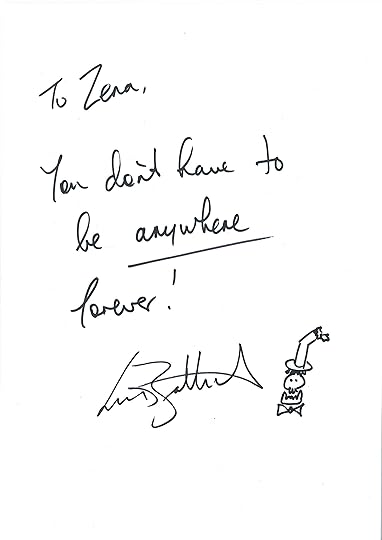 To Zena,
You don't have to
be anywhere
forever!